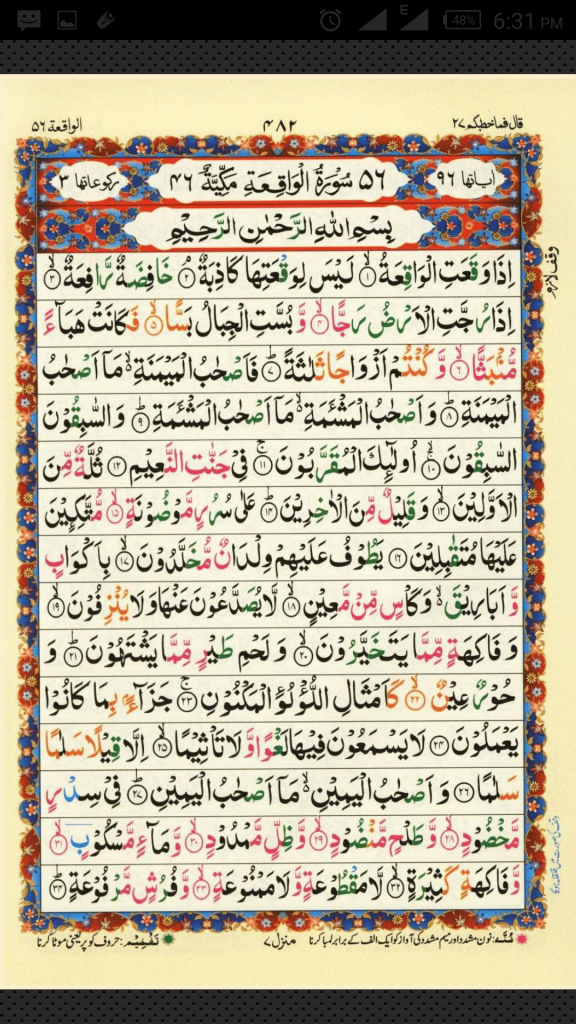 E 48% 6:31 PM
قال فماخطبكم ٢٧ ٤٨٢ الواقعة ٥٦
اٰیاتها ٩٦ ٥٦ سُوْرَةُ الْوَاقِعَةِ مَكِّيَّةٌ ٤٦ ركوعاتها ٣
بِسْمِ اللّٰهِ الرَّحْمٰنِ الرَّحِيْمِ
اِذَا وَقَعَتِ الْوَاقِعَةُ ۙ﴿١﴾ لَيْسَ لِوَقْعَتِهَا كَاذِبَةٌ ۘ﴿٢﴾ خَافِضَةٌ رَّافِعَةٌ ۙ﴿٣﴾
وقف لازم
اِذَا رُجَّتِ الْاَرْضُ رَجًّا ۙ﴿٤﴾ وَّ بُسَّتِ الْجِبَالُ بَسًّا ۙ﴿٥﴾ فَكَانَتْ هَبَآءً
مُّنْۢبَثًّا ۙ﴿٦﴾ وَّ كُنْتُمْ اَزْوَاجًا ثَلٰثَةً ؕ﴿٧﴾ فَاَصْحٰبُ الْمَيْمَنَةِ ۙ۬ مَاۤ اَصْحٰبُ
الْمَيْمَنَةِ ؕ﴿٨﴾ وَ اَصْحٰبُ الْمَشْـَٔمَةِ ۙ۬ مَاۤ اَصْحٰبُ الْمَشْـَٔمَةِ ؕ﴿٩﴾ وَ السّٰبِقُوْنَ
السّٰبِقُوْنَ ۙ﴿١٠﴾ اُولٰٓئِكَ الْمُقَرَّبُوْنَ ۚ﴿١١﴾ فِيْ جَنّٰتِ النَّعِيْمِ ﴿١٢﴾ ثُلَّةٌ مِّنَ
الْاَوَّلِيْنَ ۙ﴿١٣﴾ وَ قَلِيْلٌ مِّنَ الْاٰخِرِيْنَ ؕ﴿١٤﴾ عَلٰى سُرُرٍ مَّوْضُوْنَةٍ ۙ﴿١٥﴾ مُّتَّكِـِٕيْنَ
عَلَيْهَا مُتَقٰبِلِيْنَ ﴿١٦﴾ يَطُوْفُ عَلَيْهِمْ وِلْدَانٌ مُّخَلَّدُوْنَ ۙ﴿١٧﴾ بِاَكْوَابٍ
وَّ اَبَارِيْقَ ۙ۬ وَ كَاْسٍ مِّنْ مَّعِيْنٍ ۙ﴿١٨﴾ لَّا يُصَدَّعُوْنَ عَنْهَا وَ لَا يُنْزِفُوْنَ ۙ﴿١٩﴾
وَ فَاكِهَةٍ مِّمَّا يَتَخَيَّرُوْنَ ۙ﴿٢٠﴾ وَ لَحْمِ طَيْرٍ مِّمَّا يَشْتَهُوْنَ ؕ﴿٢١﴾ وَ
حُوْرٌ عِيْنٌ ۙ﴿٢٢﴾ كَاَمْثَالِ اللُّؤْلُؤِ الْمَكْنُوْنِ ۚ﴿٢٣﴾ جَزَآءًۢ بِمَا كَانُوْا
يَعْمَلُوْنَ ﴿٢٤﴾ لَا يَسْمَعُوْنَ فِيْهَا لَغْوًا وَّ لَا تَاْثِيْمًا ۙ﴿٢٥﴾ اِلَّا قِيْلًا سَلٰمًا
سَلٰمًا ﴿٢٦﴾ وَ اَصْحٰبُ الْيَمِيْنِ ۙ۬ مَاۤ اَصْحٰبُ الْيَمِيْنِ ؕ﴿٢٧﴾ فِيْ سِدْرٍ
مَّخْضُوْدٍ ۙ﴿٢٨﴾ وَّ طَلْحٍ مَّنْضُوْدٍ ۙ﴿٢٩﴾ وَّ ظِلٍّ مَّمْدُوْدٍ ۙ﴿٣٠﴾ وَّ مَآءٍ مَّسْكُوْبٍ ۙ﴿٣١﴾
وَّ فَاكِهَةٍ كَثِيْرَةٍ ۙ﴿٣٢﴾ لَّا مَقْطُوْعَةٍ وَّ لَا مَمْنُوْعَةٍ ۙ﴿٣٣﴾ وَّ فُرُشٍ مَّرْفُوْعَةٍ ؕ﴿٣٤﴾
غُنَّہ: نون مشدد اور میم مشدد کی آواز کو ایک الف کے برابر لمبا کرنا منزل ٧ تَفْخِیْم: حروف کو پُر یعنی موٹا کرنا